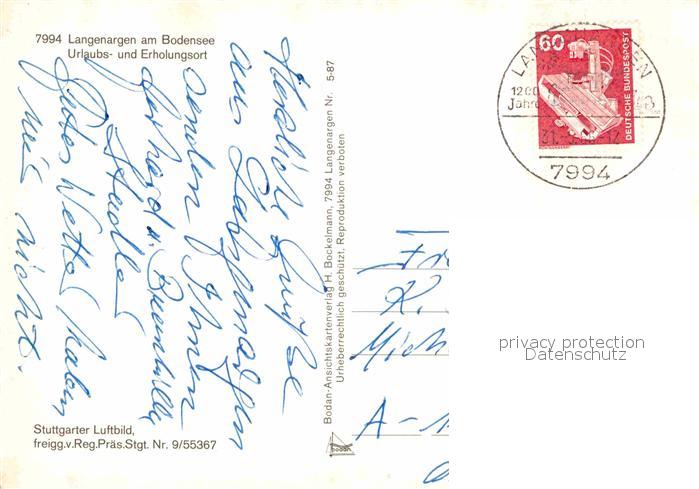 7994 Langenargen am Bodensee
Urlaubs- und Erholungsort
Herzliche Grüße
aus Langenargen
senden Ihnen
Gerhard u.
Gutes Wetter haben
wir nicht.
Stuttgarter Luftbild,
freigg.v.Reg.Präs.Stgt. Nr. 9/55367
Bodan-Ansichtskartenverlag H. Bockelmann, 7994 Langenargen Nr. 5-87
Urheberrechtlich geschützt, Reproduktion verboten
bodan
60
DEUTSCHE BUNDESPOST
1200
Jahre
7994
K.
A-
privacy protection
Datenschutz